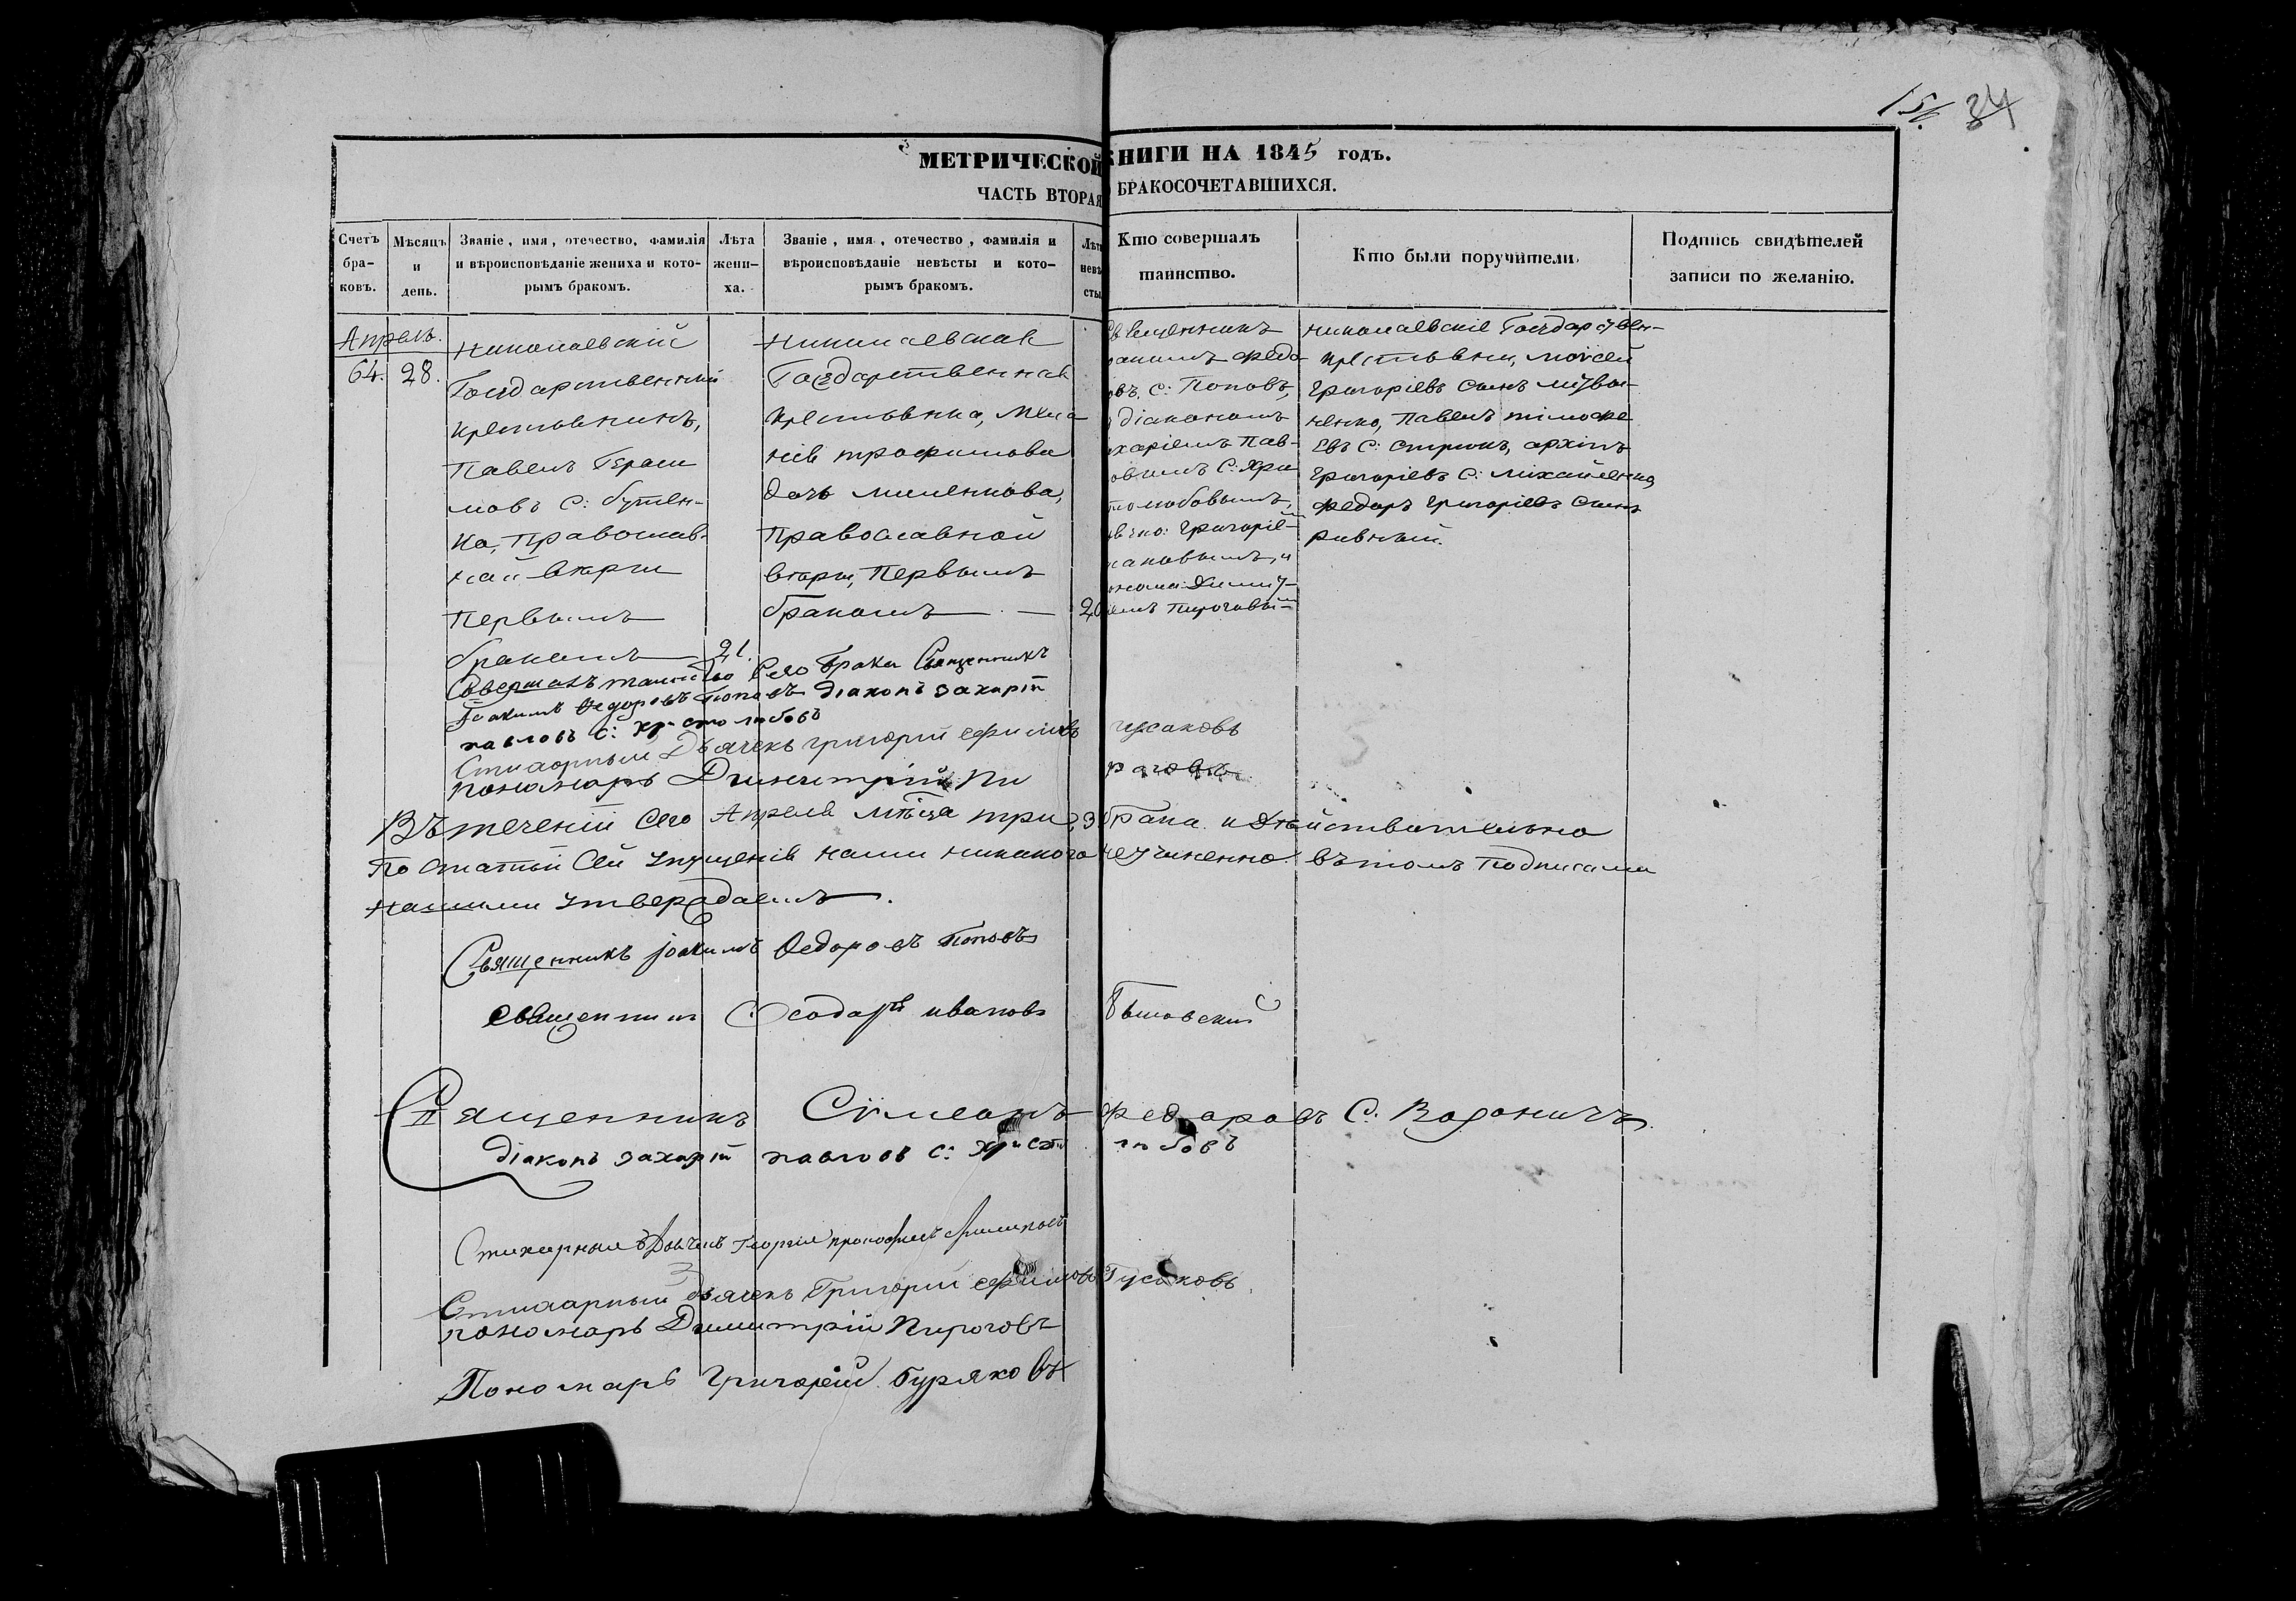 34
МЕТРИЧЕСКОЙ КНИГИ НА 1845 годъ.
ЧАСТЬ ВТОРАЯ БРАКОСОЧЕТАВШИХСЯ.
Счетъ бра- ковъ.
Мѣсяцъ и день.
Званіе, имя, отечество, фамилія и вѣроисповѣданіе жениха и кото- рымъ бракомъ.
Лѣта жени- ха.
Званіе, имя, отечество, фамилія и вѣроисповѣданіе невѣсты и кото- рымъ бракомъ.
Лѣта невѣ сты
Кто совершалъ таинство.
Кто были поручители.
Подпись свидѣтелей записи по желанію.
Апрель.
64. 28.
Николаевскій
Государственный
крестьянинъ,
Павелъ Гераси
мовъ С: бутен-
ко, Православ-
ной вѣры
Первымъ
бракомъ 21.
Николаевская
Государственная
крестьянка, Мела
нія трофимова
дочь миленкова,
Православной
вѣры, Первымъ
бракомъ — 20
Священникъ
акимъ Федо-
овъ. С: Поповъ,
діакономъ
харіемъ Пав-
овымъ С: Хри
толюбовымъ,
Григоріе-
емъ Пирогова
Николаевскіе Государствен-
крестьяни, моѵсей
Григоріевъ Сынъ
ненко, Павелъ тимофе
евъ С: , архипъ
Григоріевъ С: Михайленко
Федоръ Григоріевъ Сынъ
ривный.
Совершалъ таинство Сего брака Священникъ
Іоакимъ Ѳедоровъ Поповъ діаконъ захарій
павловъ С: христолюбовъ
Стихарный Дьячекъ григорій ефимовъ гусаковъ
пономарь Димитрій Пироговъ
Въ теченіи Сего Апреля мѣсяца три 3 брака. и дѣйствительно
По Статьи Сей упущенія нами никакого неучиненно. въ томъ подписами
нашими утверждаемъ.
Священникъ Іоакимъ Ѳедоровъ Поповъ
священникъ ивановъ
Священникъ Сѵмеонъ федоровъ С:
діаконъ захарій павловъ С: Христолюбовъ
Стихарный Дьячекъ Георгій прокофьевъ
Стихарный дьячекъ Григорій ефимовъ Гусаковъ.
пономарь Димитрій Пироговъ
Пономарь григорій. буряковъ